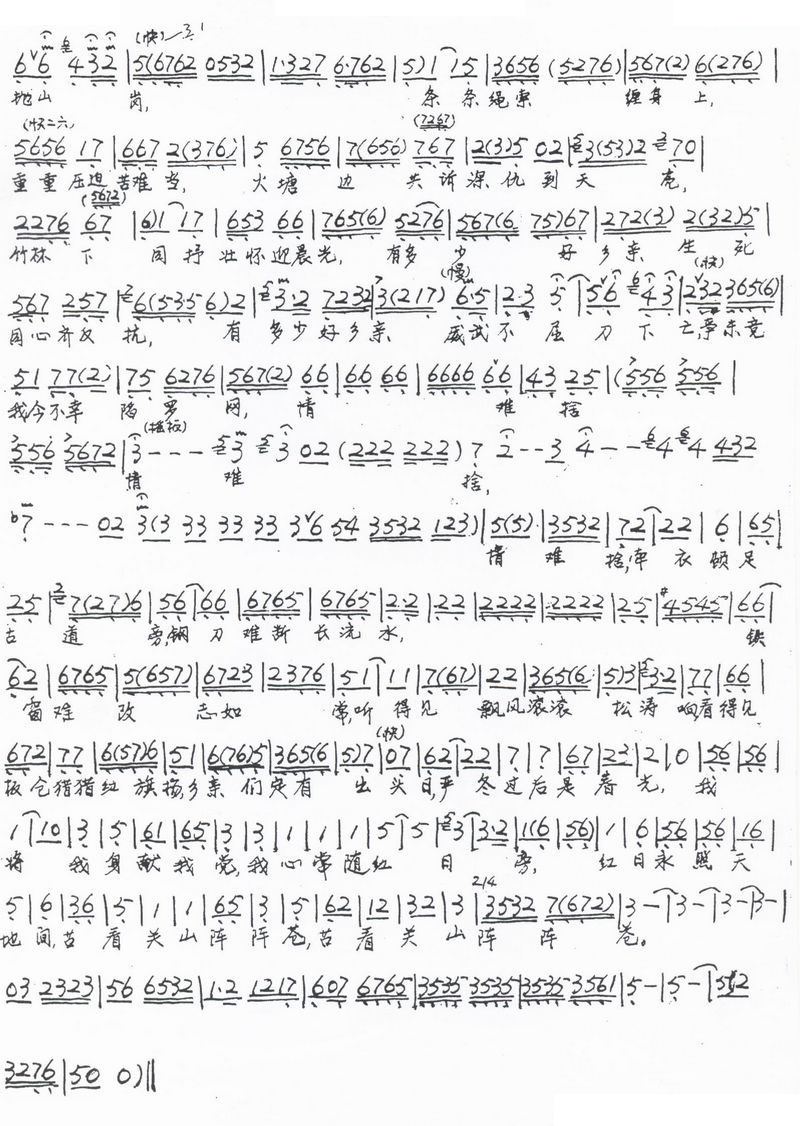 6 6 4 3 2 | 5(6762 0532 | 1·327 6·762 | 5) 1 15 | 3656 (5276) | 567(2) 6(276) |
拋山 岗, 条 条 绳索 缠身 上,
(快二六)
5656 17 | 667 2(376) | 5 6756 | 7(656) 767 | 2(3)5 02 | 3(53)2 70 |
(7267)
重重 压迫 苦难 当, 火塘 边 共诉 深仇 到天 亮,
(5672)
2276 67 | 6) 1 17 | 653 66 | 765(6) 5276 | 567(6 75)67 | 272(3) 2(32)5 |
竹林 下 同 抒 壮怀 迎晨光, 有多 少 好 乡亲 生 死
(慢) (快)
567 257 | 6(535 6)2 | 3·2 7232 | 3(217) 6·5 | 2·3 5 | 56 43 | 232 365(6) |
同心 齐反 抗, 有 多少 好乡亲 威武 不 屈 刀 下 亡,
51 77(2) | 75 6276 | 567(2) 66 | 66 66 | 6666 66 | 43 25 | (556 556 |
我今不幸 陷 罗 网, 情 难 捨
(摇板)
556 5672 | 3 - - - 5 3 02 (222 222) 7 2 - - 3 4 - - 4 4 432
情 难 捨,
7 - - - 02 3(3 33 33 33 36 54 3532 123) | 5(5) | 3532 | 72 | 22 | 6 | 65 |
情 难 捨,牵 衣 顿 足
25 | 7(27)6 | 56 | 66 | 6765 | 6765 | 2·2 | 22 | 2222 | 2222 | 25 | #4545 | 66 |
古 道 旁,钢 刀 难断 长流 水, 铁
62 | 6765 | 5(657) | 6723 | 2376 | 51 | 11 | 7(67) | 22 | 365(6 | 5)3 | 3·2 | 77 | 66 |
窗 难 改 志如 常,听 得见 飘风滚滚 松涛 响看得见
(快)
672 | 77 | 6(57)6 | 51 | 6(76)5 | 365(6 | 5)7 | 07 | 62 | 22 | 7 | 7 | 67 | 23 | 2 | 0 | 56 | 56 |
板仓猎猎红 旗扬,乡亲 们定有 出 头日,严 冬过后是 春光, 我
1 10 | 3 | 5 | 61 | 65 | 3 | 3 | 1 | 1 | 1 | 5 | 5 | 3 | 3·2 | 116 | 56) | 1 | 6 | 56 | 56 | 16 |
将 我身献我党,我心常随红 日 旁, 红日永照天
2/4
5 | 6 | 36 | 5 | 1 | 1 | 65 | 3 | 5 | 62 | 12 | 32 | 3 | 3532 7(672) | 3 - | 3 - | 3 - | 3 - |
地间,苦看关山阵阵苍,苦看关山阵 阵 苍。
03 2323 | 56 6532 | 1·2 1217 | 607 6765 | 3535 3535 | 3535 3561 | 5 - | 5 - | 5 2
3276 | 50 0) ||